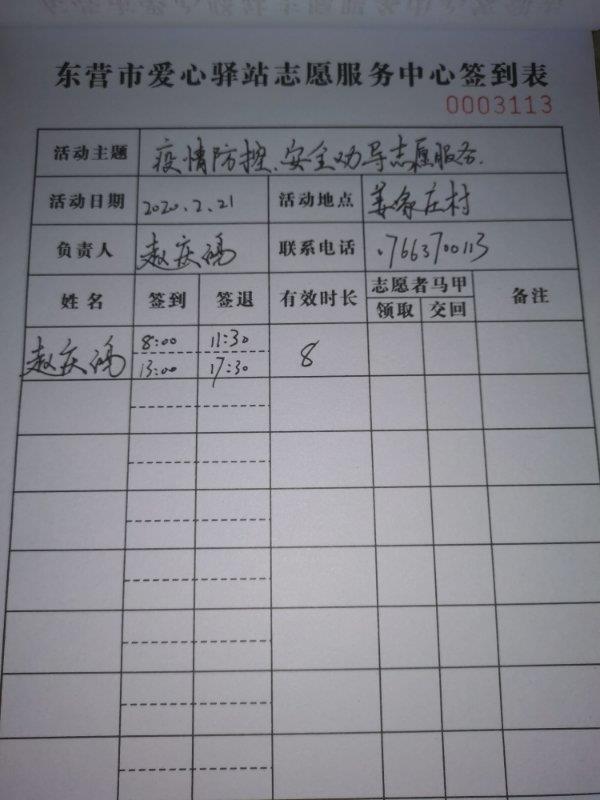 东营市爱心驿站志愿服务中心签到表
0003113
活动主题 疫情防控、安全劝导志愿服务.
活动日期 2020.2.21 活动地点 姜家庄村
负责人 赵庆鸿 联系电话 17663700113
姓名 签到 签退 有效时长 志愿者马甲 备注
领取 交回
赵庆鸿 8:00 11:30 8
13:00 17:30